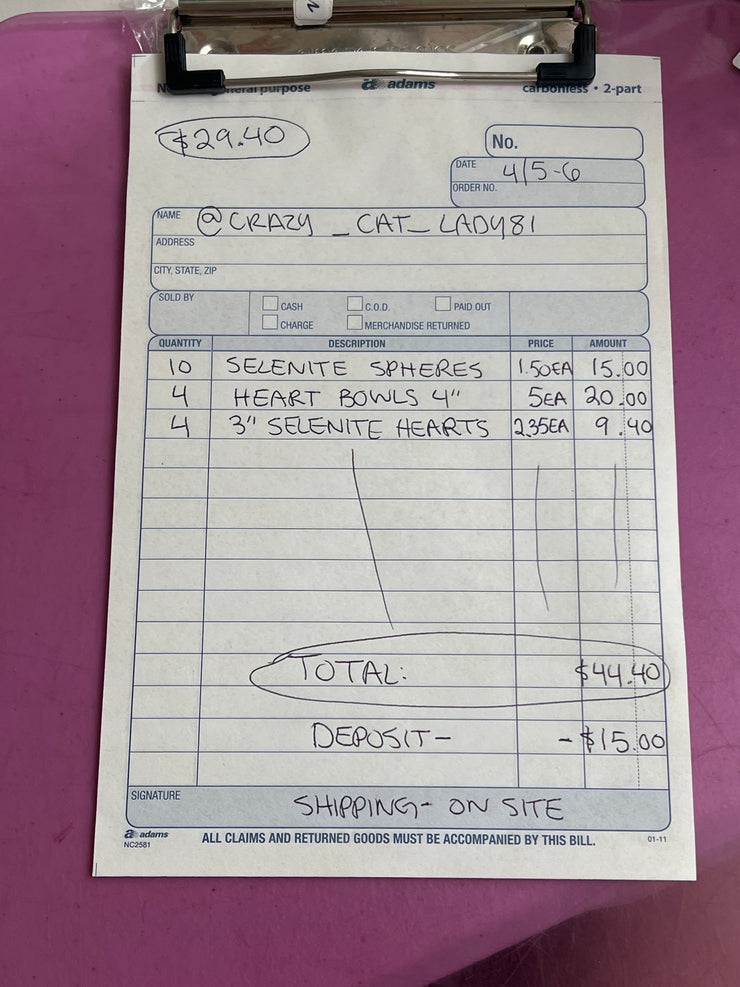 general purpose adams carbonless • 2-part
$29.40
No.
DATE 4/5-6
ORDER NO.
NAME @CRAZY_CAT_LADY81
ADDRESS
CITY, STATE, ZIP
SOLD BY CASH C.O.D. PAID OUT
CHARGE MERCHANDISE RETURNED
QUANTITY DESCRIPTION PRICE AMOUNT
10 SELENITE SPHERES 1.50EA 15.00
4 HEART BOWLS 4" 5EA 20.00
4 3" SELENITE HEARTS 2.35EA 9.40
TOTAL: $44.40
DEPOSIT- -$15.00
SIGNATURE SHIPPING- ON SITE
adams
NC2581 ALL CLAIMS AND RETURNED GOODS MUST BE ACCOMPANIED BY THIS BILL. 01-11